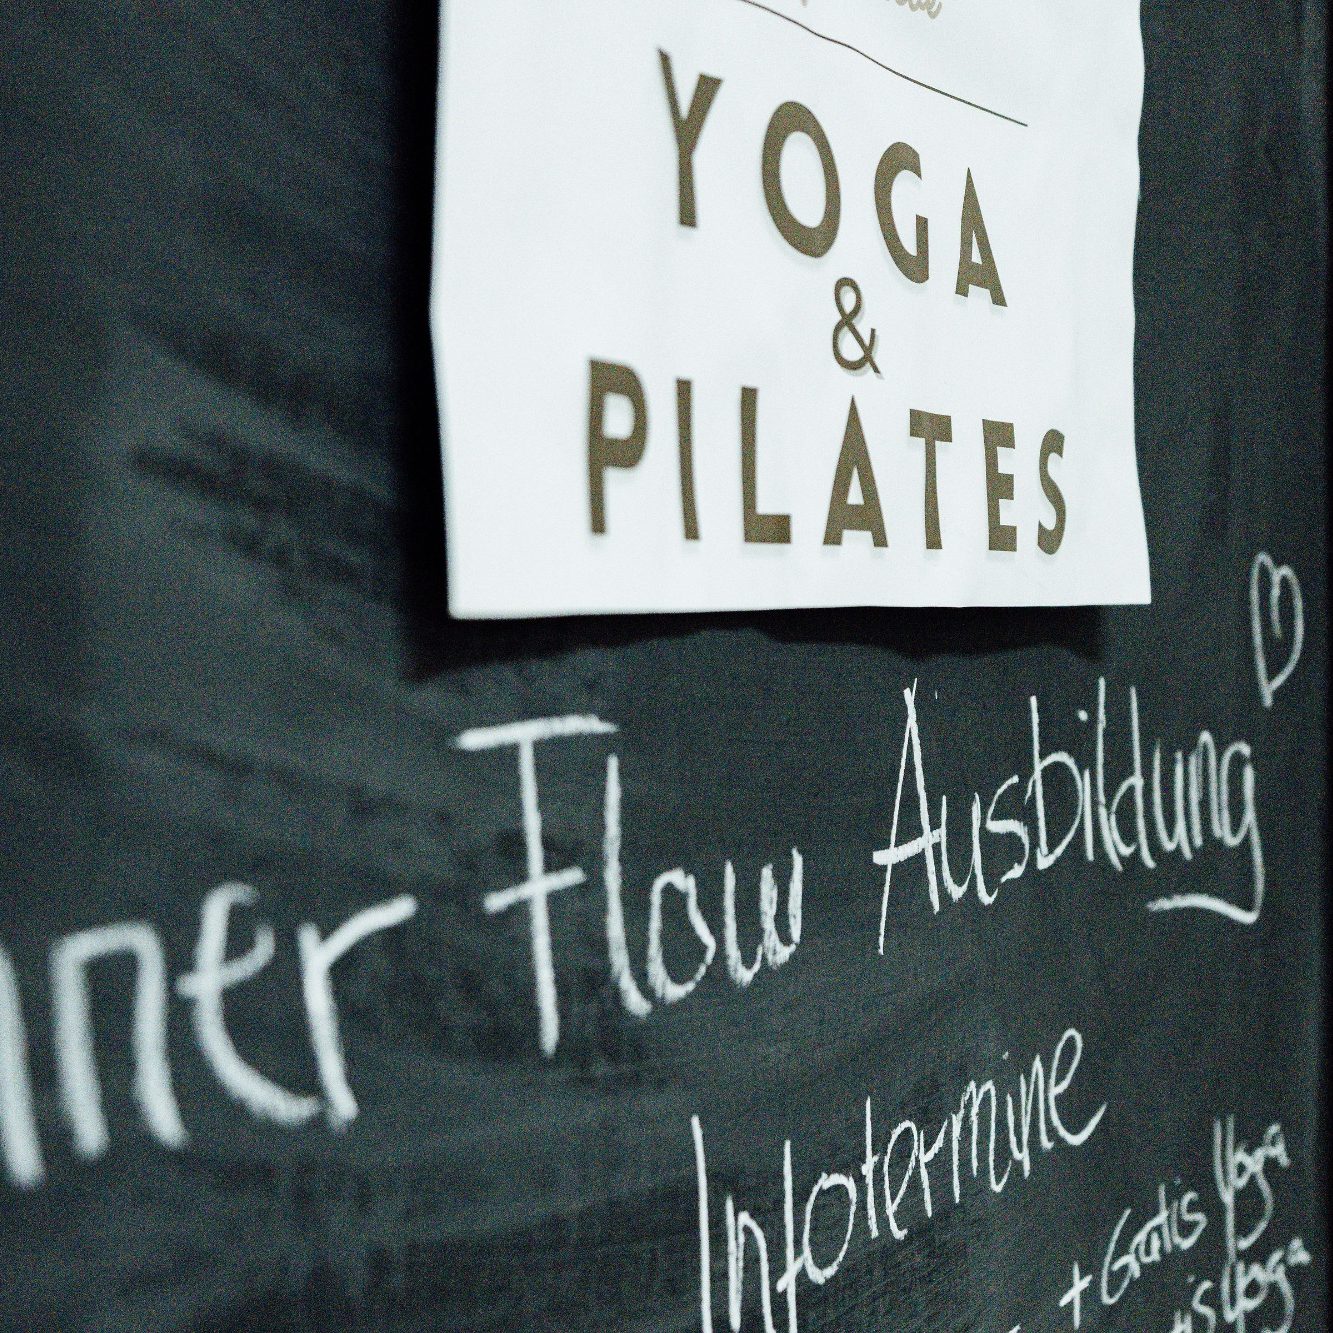 YOGA
&
PILATES
nner Flow Ausbildung
Infotermine
+ Gratis Yoga
is Yoga